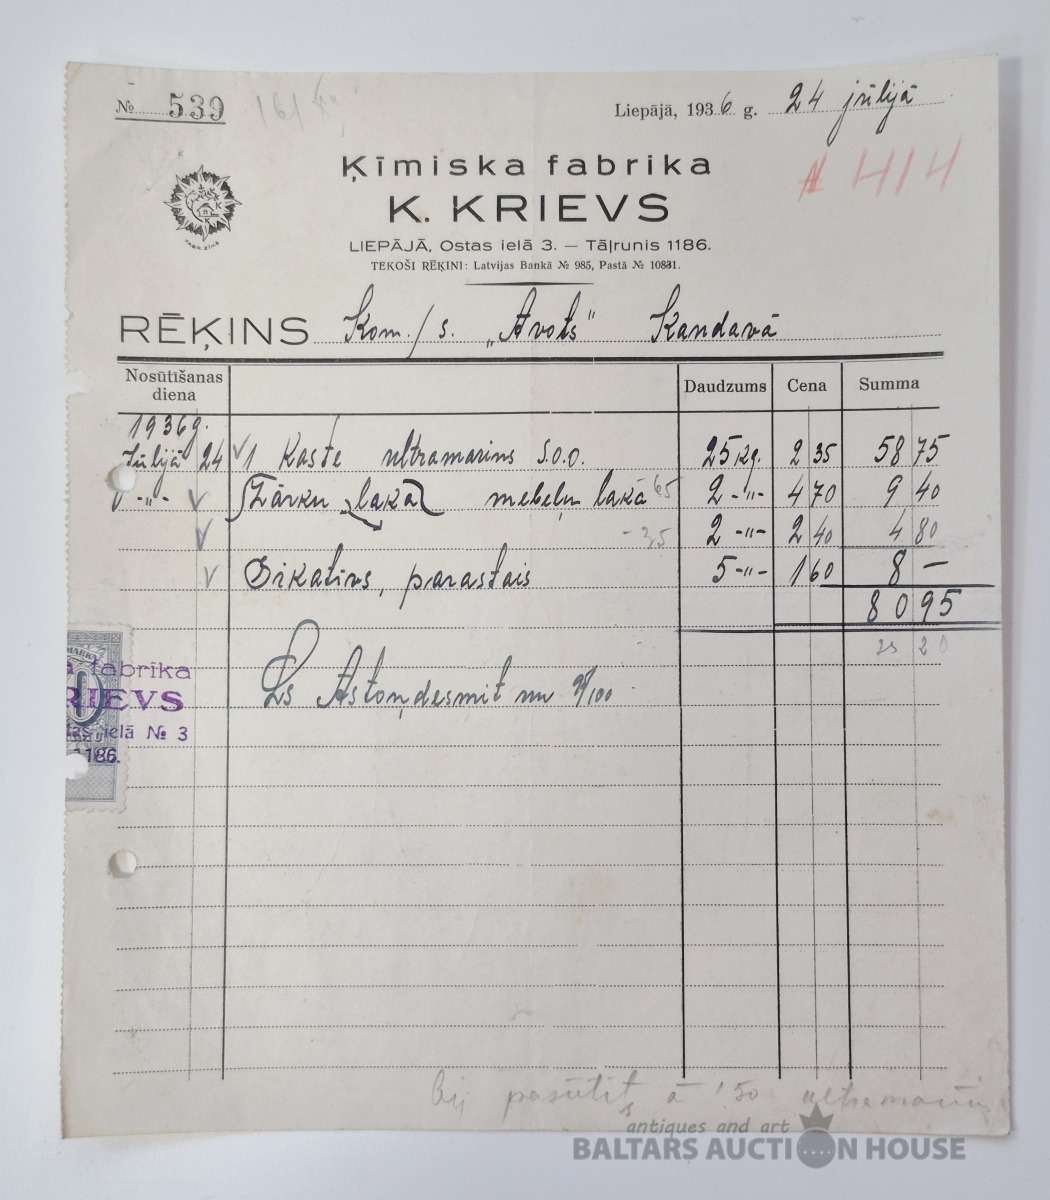 № 539
Liepājā, 1936 g. 24 jūlijā
№ 414
Ķīmiska fabrika
K. KRIEVS
FABR. ZĪME
LIEPĀJĀ, Ostas ielā 3. — Tāļrunis 1186.
TEKOŠI RĒĶINI: Latvijas Bankā № 985, Pastā № 10831.
RĒĶINS Kom./s. „Avots" Kandavā
Nosūtīšanas diena Daudzums Cena Summa
1936g.
Jūlijā 24 1 Kaste ultramarins S.O.O. 25 kg. 2 35 58 75
-"- Zārku laka mebeļu lakā 65 2 -"- 4 70 9 40
- 35 2 -"- 2 40 4 80
Sikativs, parastais 5 -"- 1 60 8 —
80 95
25 20
Ls Astoņdesmit un 95/100
a fabrīka
RIEVS
ielā № 3
1186.
bij pasūtīts à 1'50 ultramarīns
antiques and art
BALTARS AUCTION HOUSE